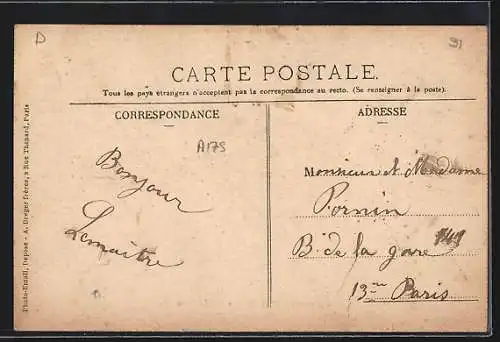 D
91
CARTE POSTALE.
Tous les pays étrangers n'acceptent pas la correspondance au recto. (Se renseigner à la poste).
CORRESPONDANCE
ADRESSE
A178
Bonjour
Lemaître
Monsieur et Madame
Pornin
B. de la gare 149
13me Paris
Photo-Émail, Déposé - A. Breger frères, 9 Rue Thénard, Paris